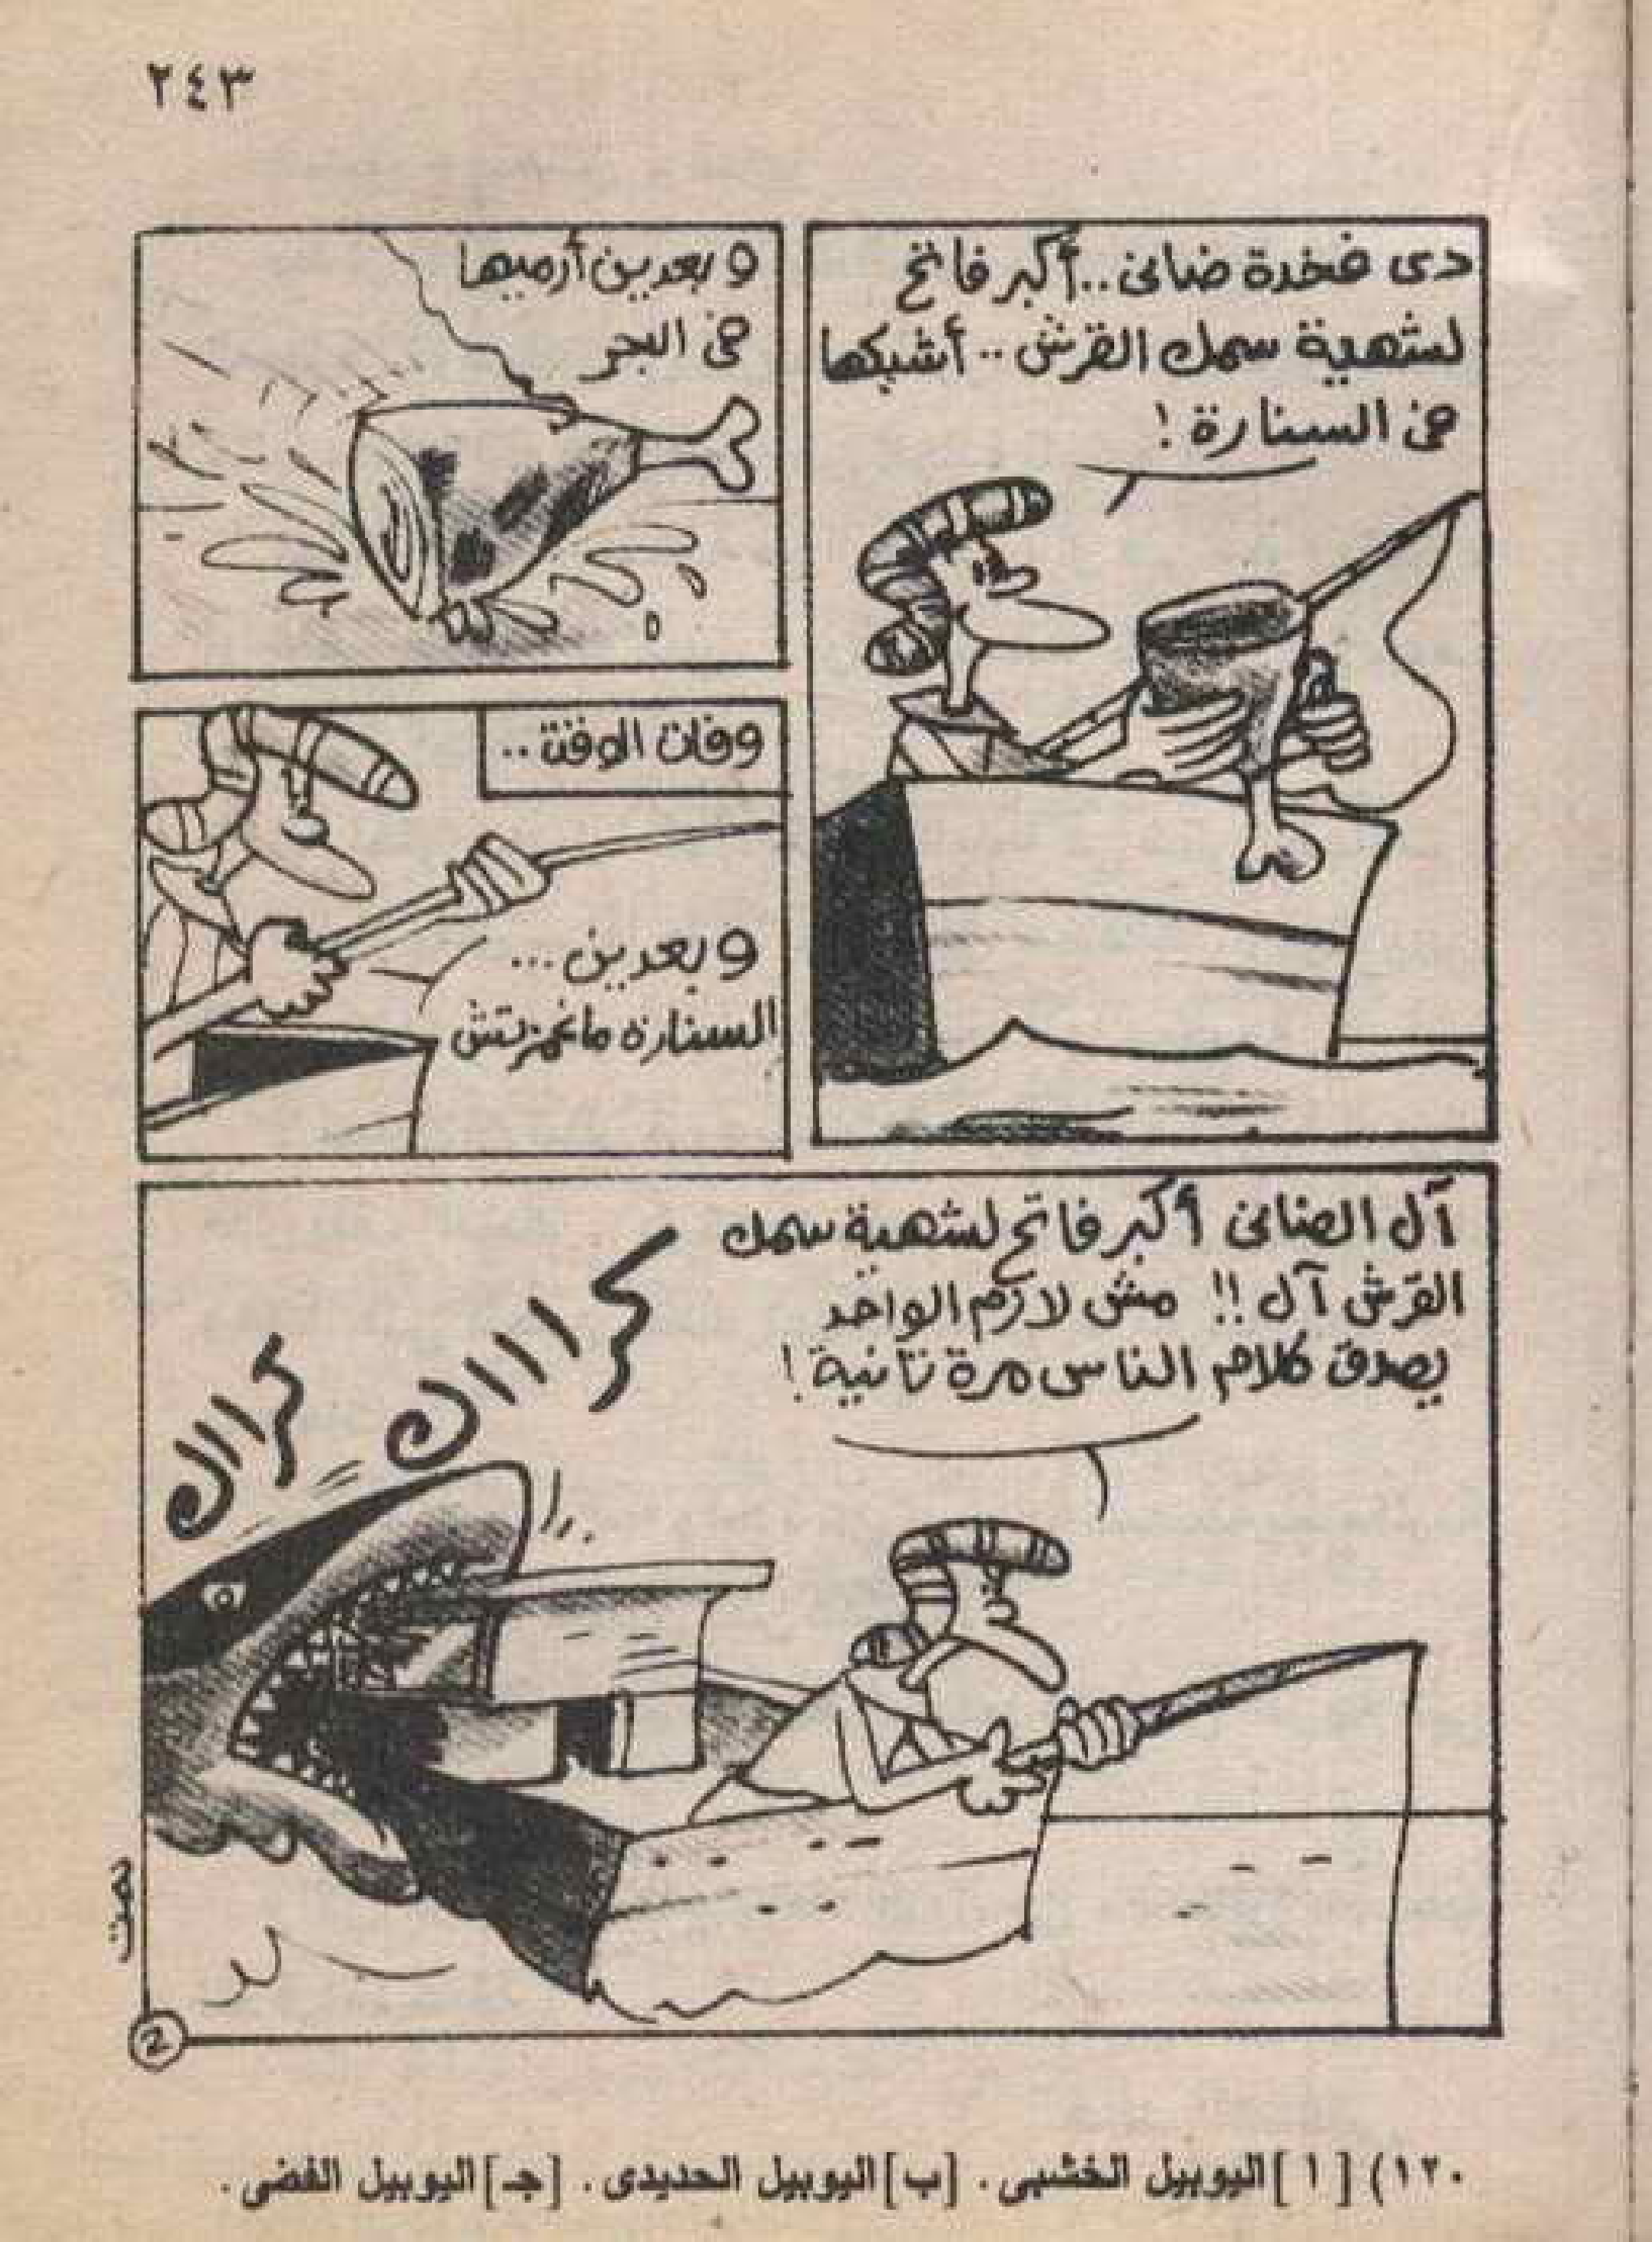 ٢٤٣
دى فخدة ضانى..أكبر فاتح
لشهية سمك القرش.. أشبكها
فى السنارة !
و بعدين أرميها
فى البحر
وفات الوقت ..
و بعدين ...
السنارة ماغمزتش
آل الضانى أكبر فاتح لشهية سمك
القرش آل !! مش لازم الواحد
يصدق كلام الناس مرة تانية !
كراااك
كرااك
2
١٢٠) [ ا ] اليوبيل الخشبى . [ب] اليوبيل الحديدى . [جـ] اليوبيل الفضى .